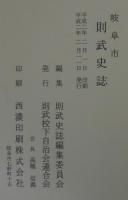 岐阜市
則武史誌
平成二年二月一日 印刷
平成二年二月十一日 発行
編集 則武史誌編集委員会
発行 則武校下自治会連合会
会長 高橋
印刷 西濃印刷株式会社
岐阜市七軒町十五